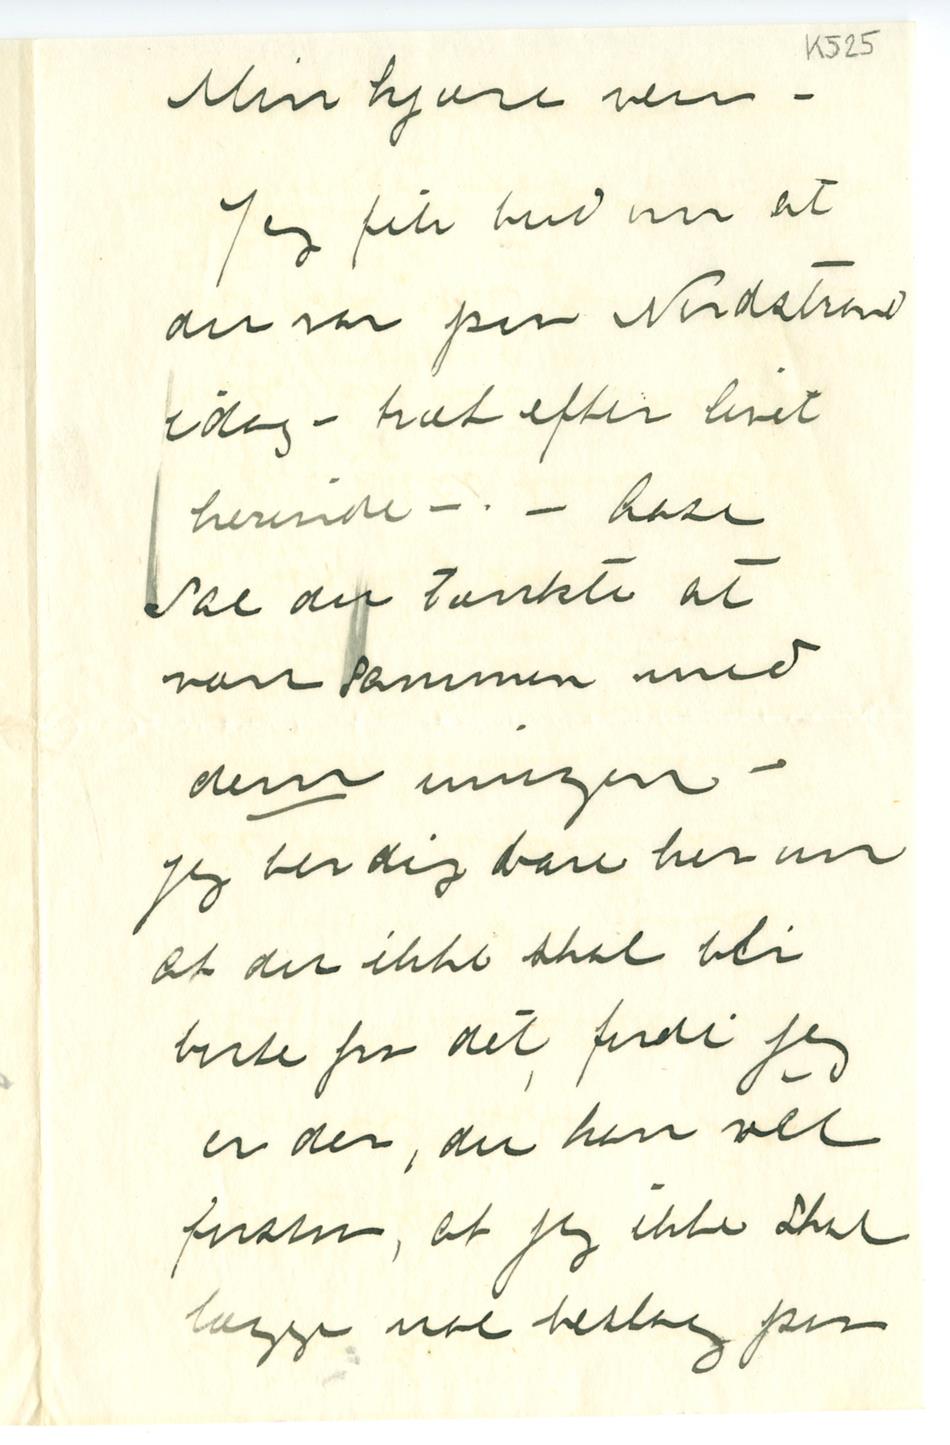 K525
Min kjære ven –
Jeg fik bud om at
du var paa Nordstrand
idag – træt efter livet
herinde – . – Aase
Sae du tænkte at
være sammen med
dem imorgen –
jeg ber dig bare her om
at du ikke skal bli
borte fra det, fordi jeg
er der, du kan vel
forstaa, at jeg ikke skal
lægge noe beslag paa